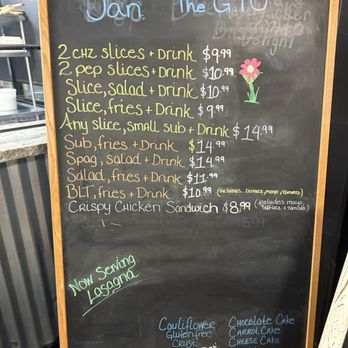 Jan. The G.T.O
2 chz slices + Drink $9.99
2 pep slices + Drink $10.99
Slice, salad + Drink $10.99
Slice, fries + Drink $9.99
Any slice, small sub + Drink $14.99
Sub, fries + Drink $14.99
Spag, salad + Drink $14.99
Salad, fries + Drink $11.99
BLT, fries + Drink $10.99 (includes lettuce, mayo, tomato)
Crispy Chicken Sandwich $8.99 (includes mayo, lettuce + tomato)
Now Serving
Lasagna
Cauliflower
Gluten free
Crust
Chocolate Cake
Carrot Cake
Cheese Cake